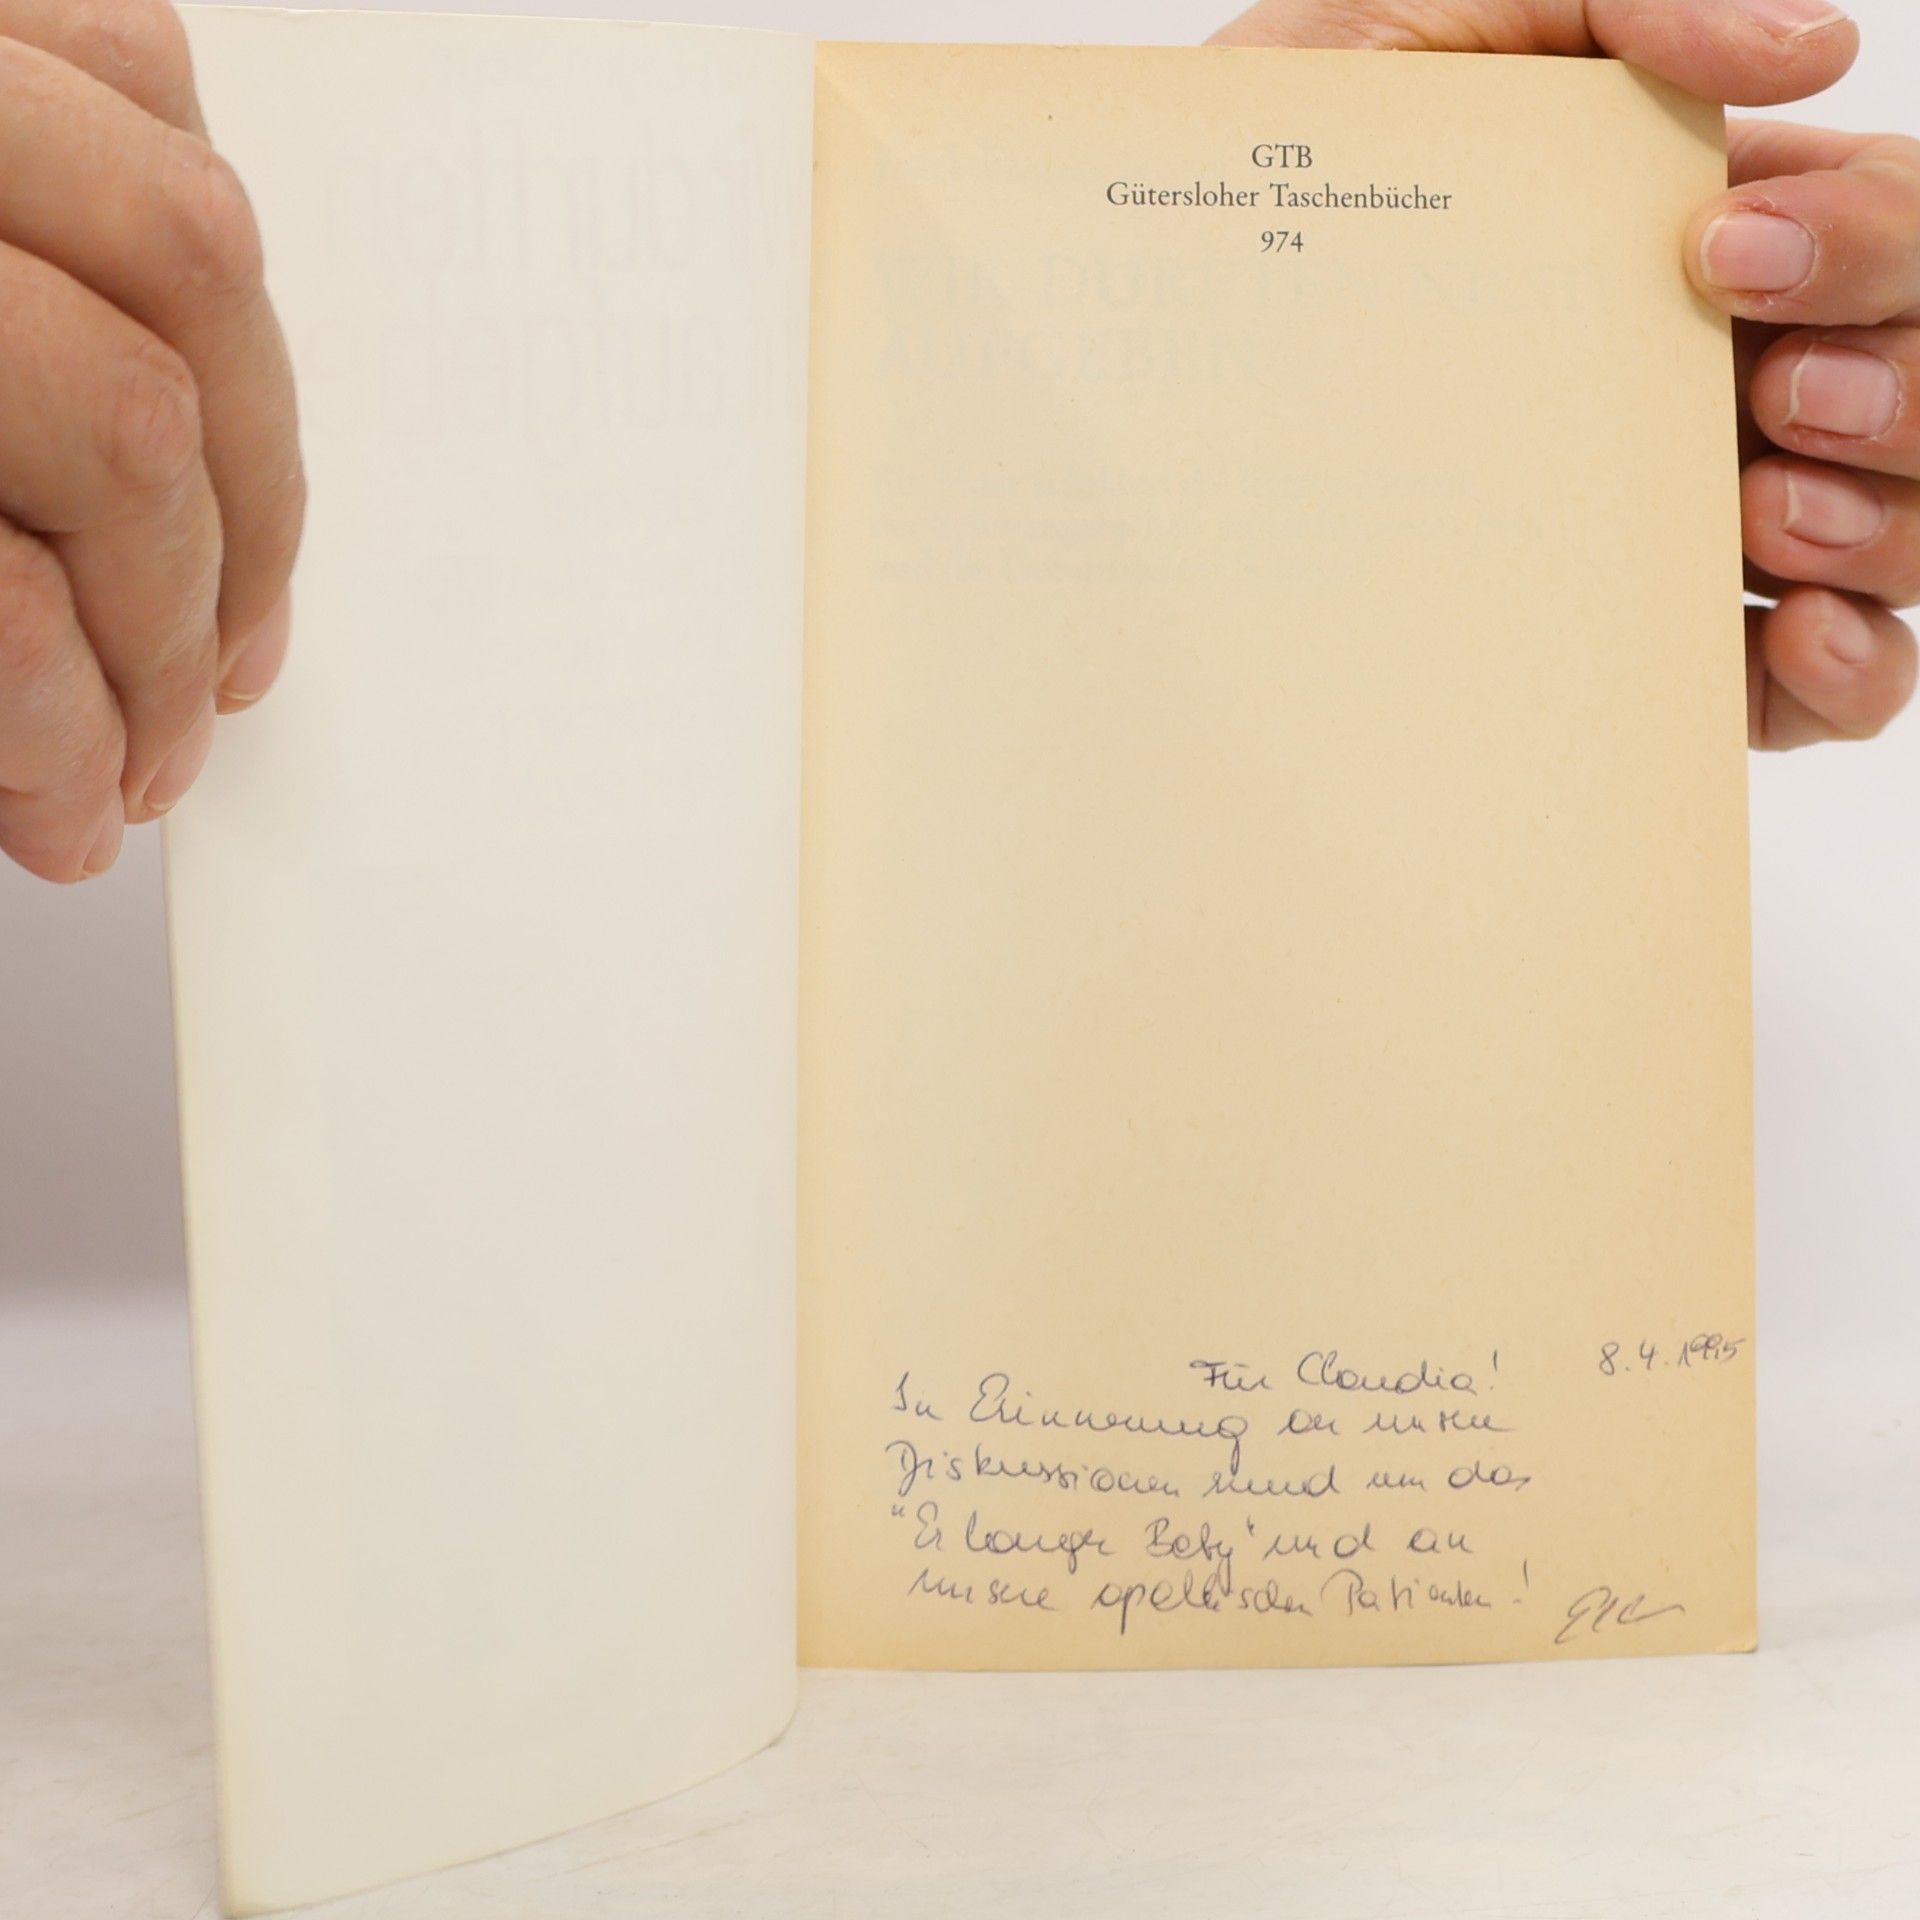 GTB
Gütersloher Taschenbücher
974
Für Claudia! 8.4.1995
In Erinnerung an unsere
Diskussionen rund um das
"Erlanger Baby" und an
unsere apallischen Patienten!